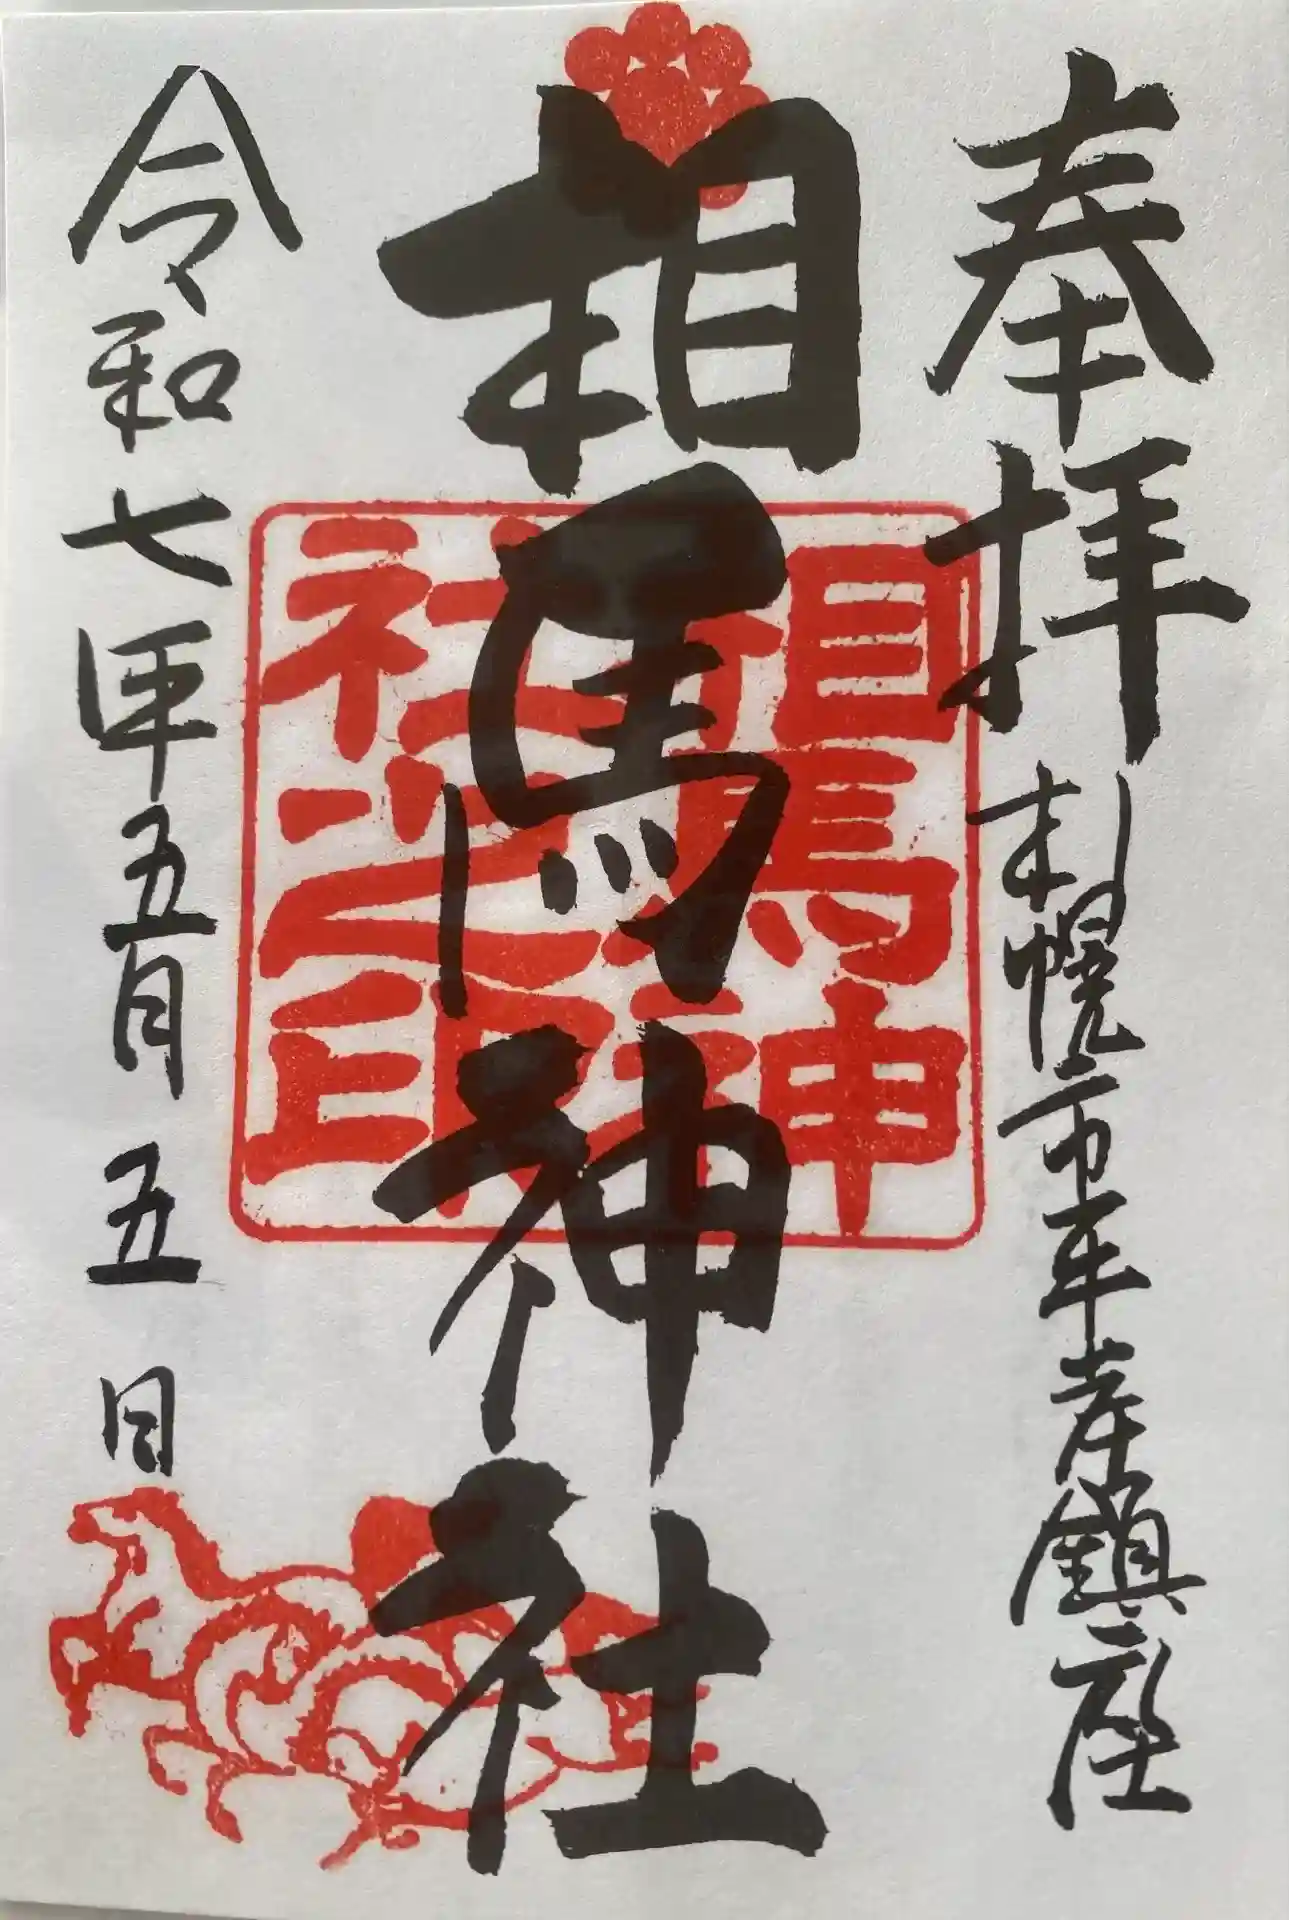 奉拝
札幌市平岸鎮座
相馬神社
相馬神
社之印
令和七年五月五日